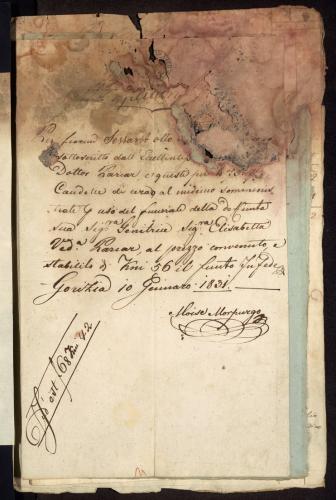 Per fiorini Sessant'otto
sottoscritto dall' Eccellente
Dottor Hariar e questi per
Candele di cera al medemo sommini
strate p uso del funerale della defunta
sua Sig.ra Genitrice Sig.ra Elisabetta
Ved.a Hariar, al prezzo convenuto, e
stabilito di Xni 36 il Funto In fede
Gorizia 10 Gennaro 1831.
Moise Morpurgo
68 Xni 42